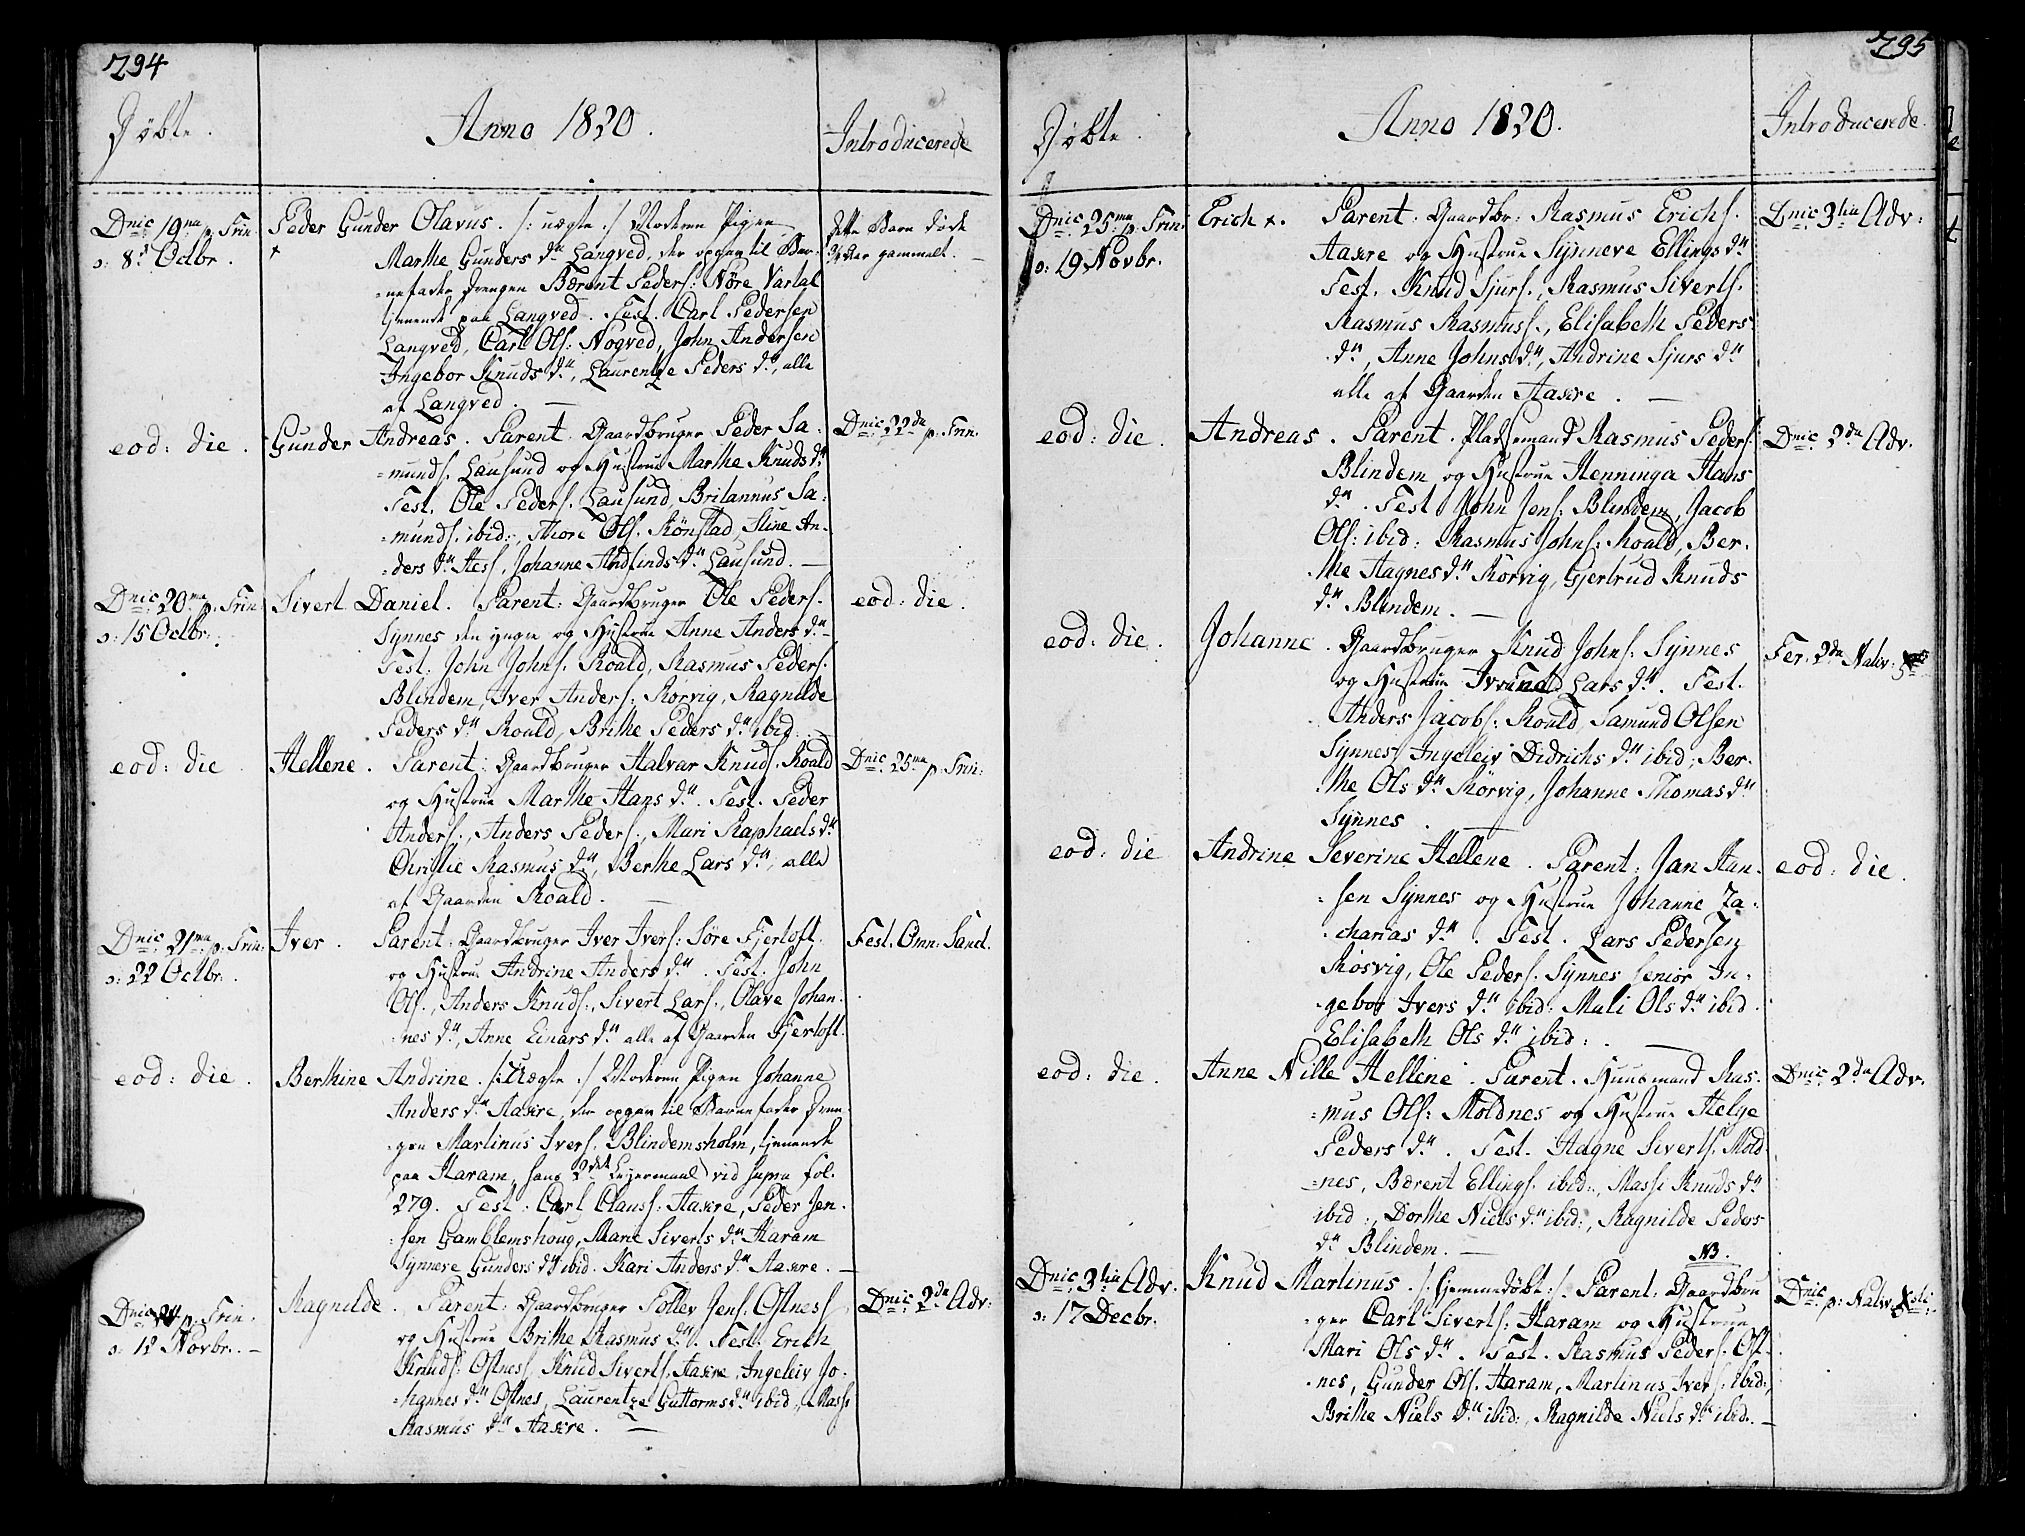 294
Døbte.
Anno 1820.
Introducerede
Dnic: 19na p. Trin:
o: 8de Octbr.
Peder Gunder Olavus. /: uægte :/ Moderen Pigen
Marthe Gunders dtr Langved, der opgav til Bar-
=nefader Drengen Bærent Peders: Nöre Vartal
tjenende paa Langved. Test. Carl Pedersen
Langved, Carl Ols: Nogved, John Andersen
Ingebor Knuds dtr, Laurentze Peders dtr, alle
af Langved.
dette Barn døde
gammelt.
eod: die.
Gunder Andreas. Parent. Gaardbruger Peder Sa-
=munds. Lausund og Hustrue Marthe Knuds dtr
Test. Ole Peders. Lausund, Britannus Sa-
=munds. ibid:, Thore Ols. Rönstad, Stine An-
=ders dtr Hess, Johanne Andfinds dtr Lausund.
Dnic: 22da p. Trin.
Dnic: 20ma p. Trin
o: 15 Octbr:
Sivert Daniel. Parent: Gaardbruger Ole Peders.
Synnes den yngre og Hustrue Anne Anders dtr
Test. John Johns. Roald, Rasmus Peders.
Blindem, Iver Anders: Rorvig, Ragnilde
Peders dtr Roald, Brithe Peders dtr ibid.
eod: die.
eod: die
Hellene. Parent: Gaardbruger Halvar Knuds. Roald
og Hustrue Marthe Hans dtr. Test. Peder
Anders., Anders Peders., Mari Raphaels dtr
Christie Rasmus dtr, Berthe Lars dtr, alle
af Gaarden Roald.
Dnic: 25ma p. Trin:
Dnic: 21ma p. Trin:
o: 22 Octbr.
Iver. Parent: Gaardbruger Iver Ivers: Søre Fjertoft.
og Hustrue Andrine Anders dtr. Test. John
Ols., Anders Knuds., Sivert Lars., Olave Johan-
=nes dtr, Anne Einars dtr alle af Gaarden Fjertoft.
Fest. Omn: Sanct.
eod: die.
Berthine Andrine. /: Uægte :/ Moderen Pigen Johanne
Anders dtr Aakre, der opgav til Barnefader Dren-
gen Martinus Ivers. Blindemsholm, tjenende
paa Haram, hans 2det Leiermaal vid supra fol.
279. Test. Carl Clauss: Aakre, Peder Jen-
sen Gamblemshoug, Marie Siverts dtr Haram
Synneve Gunders dtr ibid. Kari Anders dtr Aakre.
Dnic 24 p. Trin.
o: 12 Novbr.
Ragnilde. Parent: Gaardbruger Tollev Jens. Ostnes
og Hustrue Brithe Rasmus dtr. Test. Erich
Knuds: Ostnes, Knud Siverts. Aakre, Ingeleiv Jo-
=hannes dtr Ostnes, Laurentze Guttorms dtr ibid:, Massi
Rasmus dtr Aakre.
Dnic: 2da Adv:
295
Døbte.
Anno 1820.
Introducerede.
Dnic: 25ma p. Trin:
o: 19 Novbr.
Erich. Parent: Gaardbr: Rasmus Erichs.
Aakre og Hustrue Synneve Ellings dtr
Test. Knud Sjurs., Rasmus Siverts.
Rasmus Rasmuss., Elisabeth Peders
dtr, Anne Johns dtr, Andrine Sjurs dtr
alle af Gaarden Aakre.
Dnic: 3tia Adv:
eod: die.
Andreas. Parent. Pladsemand Rasmus Peders.
Blindem og Hustrue Henninga Hans
dtr. Test. John Jens: Blindem, Jacob
Ols: ibid: Rasmus Johns: Roald, Ber-
the Hagnes dtr Rörvig, Gjertrud Knuds
dtr Blindem.
Dnic: 2da Adv.
eod: die.
Johanne. Gaardbruger Knud Johns: Synnes
og Hustrue Lars dtr. Test.
Anders Jacobs: Roald Samund Olsen
Synnes, Ingeleiv Didrichs dtr ibid, Ber-
the Ols dtr Rörvig, Johanne Thomas dtr
Synnes.
Fer. 2da Nativ:
eod: die
Andrine Severine Hellene. Parent: Jan Han-
sen Synnes og Hustrue Johanne Za-
charias dtr. Test. Lars Pedersen
Rosvig, Ole Peders. Synnes Senior In-
gebor Ivers dtr ibid: Mali Ols dtr ibid.
Elisabeth Ols dtr ibid:.
eod: die.
eod: die.
Anne Nille Hellene. Parent. Huusmand Ras-
mus Ols: Moldnes og Hustrue Helge
Peders dtr. Test. Hagne Siverts. Mold-
=nes, Bærent Ellings. ibid:, Massi Knuds dtr
ibid:, Dorthe Niels dtr ibid:, Ragnilde Peders
dtr Blindem.
Dnic: 2da Adv.
Dnic: 3tia Adv.
o: 17 Decbr.
NB.
Knud Martinus. /: hjemmedøbt :/ Parent: Gaardbru
ger Carl Siverts: Haram og Hustrue
Mari Ols dtr. Test. Rasmus Peders. Ost-
nes, Gunder Ols. Haram, Martinus Ivers: ibid:,
Brithe Niels dtr ibid:, Ragnilde Niels dtr ibid.
Dnic: p: Nativ: Xsti: